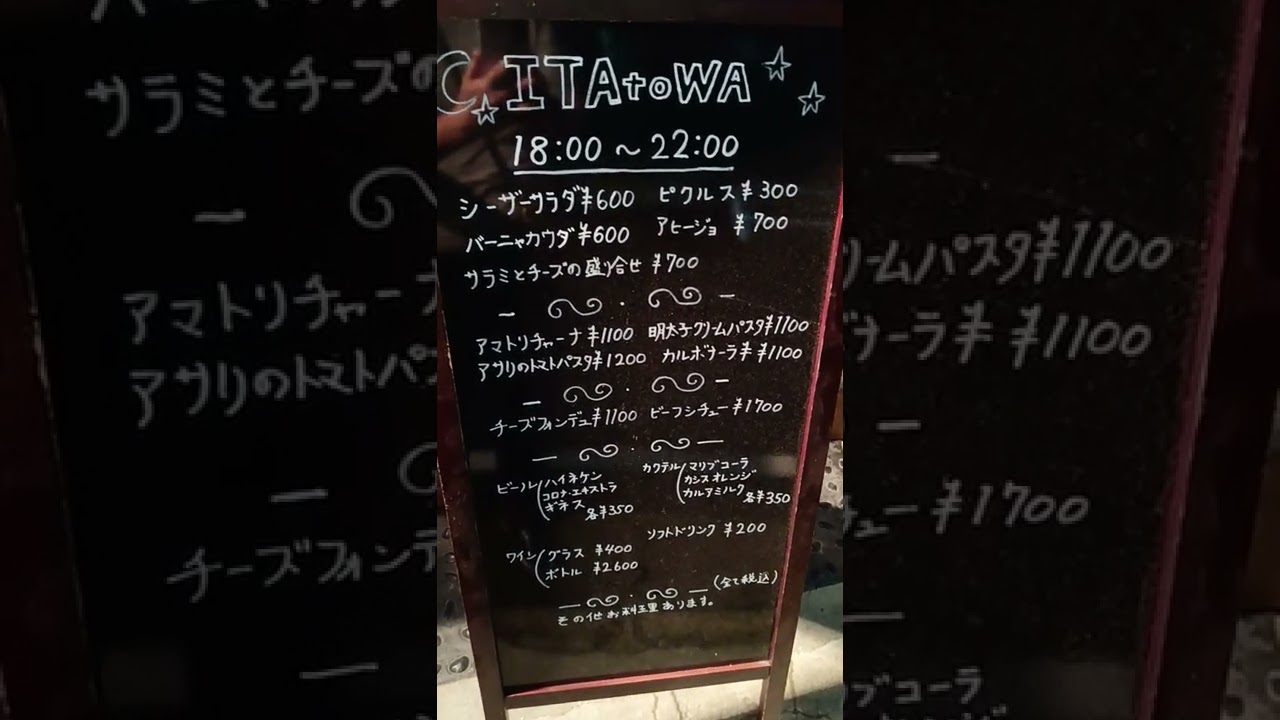 ITAtoWA
18:00 ~ 22:00
シーザーサラダ ¥600 ピクルス ¥300
バーニャカウダ ¥600 アヒージョ ¥700
サラミとチーズの盛り合せ ¥700
アマトリチャーナ ¥1100 明太子クリームパスタ ¥1100
アサリのトマトパスタ ¥1200 カルボナーラ ¥1100
チーズフォンデュ ¥1100 ビーフシチュー ¥1700
ビール ハイネケン
コロナ・エキストラ
ギネス
各¥350
カクテル マリブコーラ
カシスオレンジ
カルアミルク
各¥350
ソフトドリンク ¥200
ワイン グラス ¥400
ボトル ¥2600
(全て税込)
その他お料理あります。